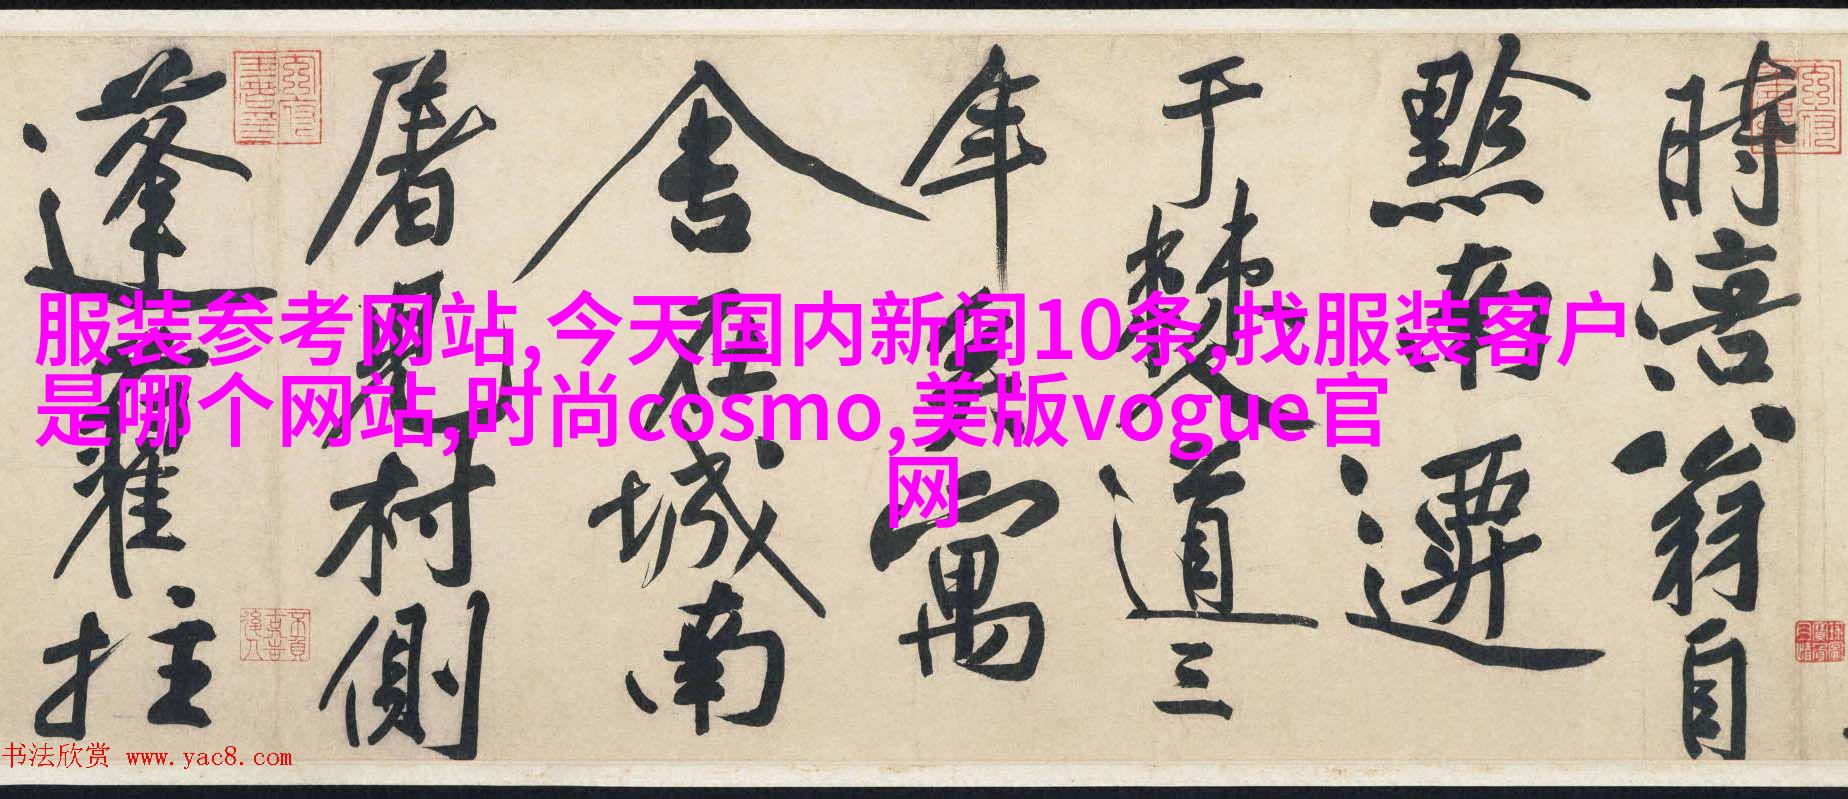 服装参考网站,今天国内新闻10条,找服装客户
是哪个网站,时尚cosmo,美版vogue官
网
時涪翁自
黔南遷
于僰道三
年矣寓
舍在城南
屠兒村側
蓬藋拄
书法欣赏 www.yac8.com